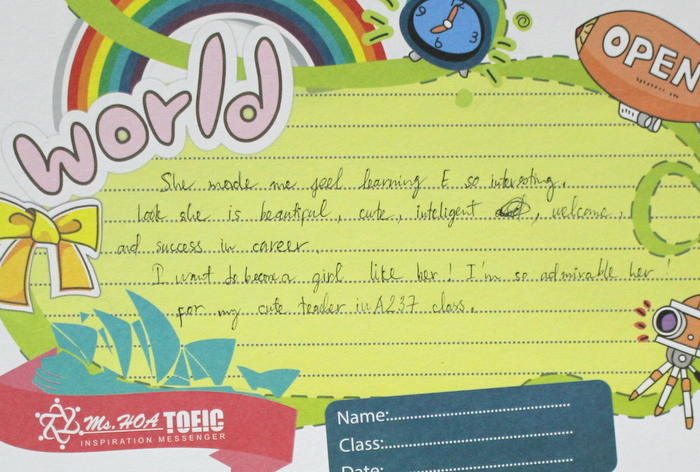 world
9 12 3 6
OPEN
She made me feel learning E so interesting.
Look she is beautiful, cute, inteligent, welcome,
and success in career.
I want to become a girl like her! I'm so admirable her!
for my cute teacher in A237 class.
Ms. HOA TOEIC
INSPIRATION MESSENGER
Name:
Class:
Date: